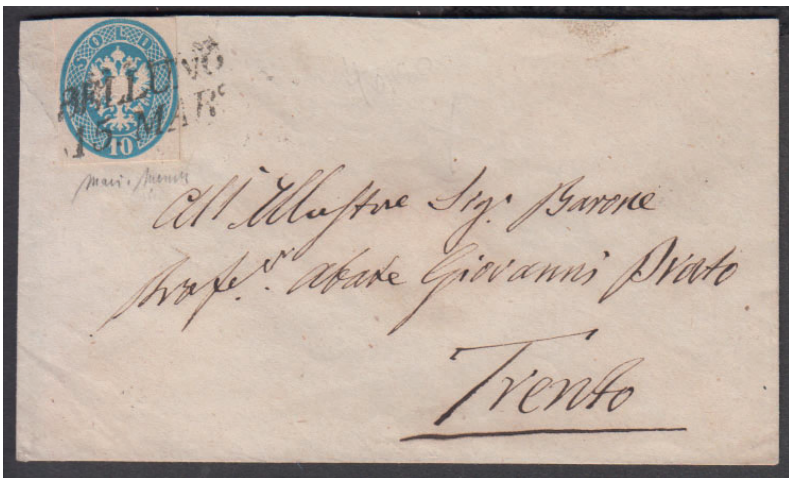 SOLDI
BELLUNO
15 MAR
10
All' Illustre Sig. Barone
Profe.r Abate Giovanni Prato
Trento